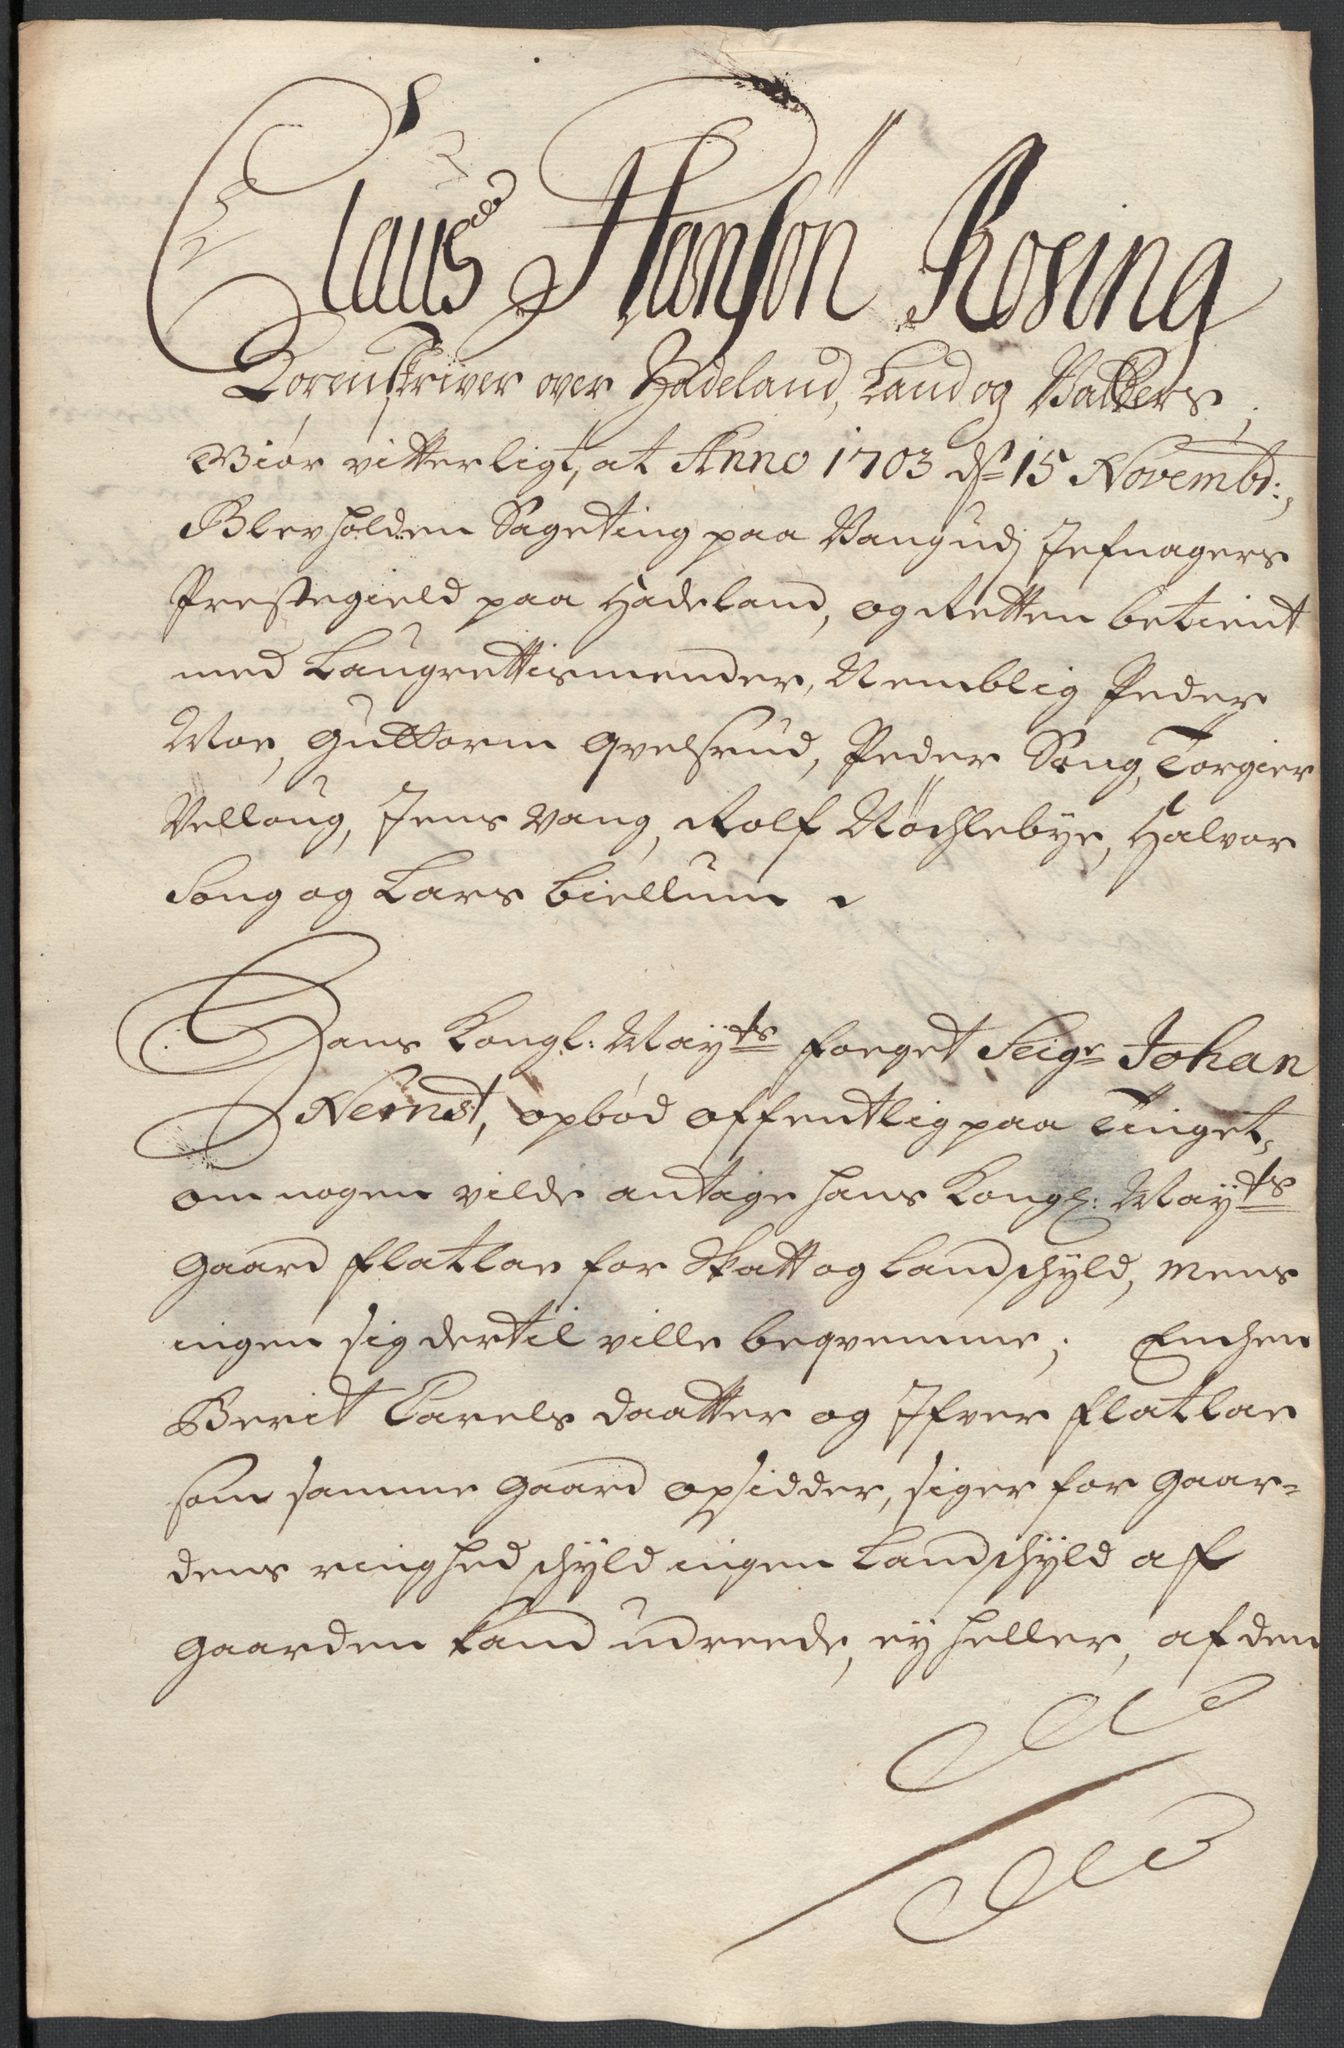 Claus Hansön Rosing
Sorenskriver over Hadeland, Land og Valders,
Giør vitterligt, at Anno 1703 dn 15 Novembr:,
Blev holden Sageting paa Vang udj Jefnagers
Prestegield paa Hadeland, og Retten betient
med Laugrettismender, Nemblig Peder
Moe, Guttorm Qvelsrud, Peder Sang, Torgier
Velloug, Jens Vang, Rolf Røchlebye, Halvor
Song og Lars Biellum
Hans Kongl: Mayts foeget Seigr Johan
Nernst, opbød offentlig paa Tinget,
om nogen vilde antage hans Kongl: Mayts
Gaard Flatlae for Skatt og Landschyld, mens
ingen sig dertil ville beqvemme; Enchen
Berit Carels daatter og Ifver Flatlae
som samme Gaard opsidder, siger for Gaar-
dens ringhed schyld ingen Landschyld af
Gaarden kand udreede, ey heller, af den